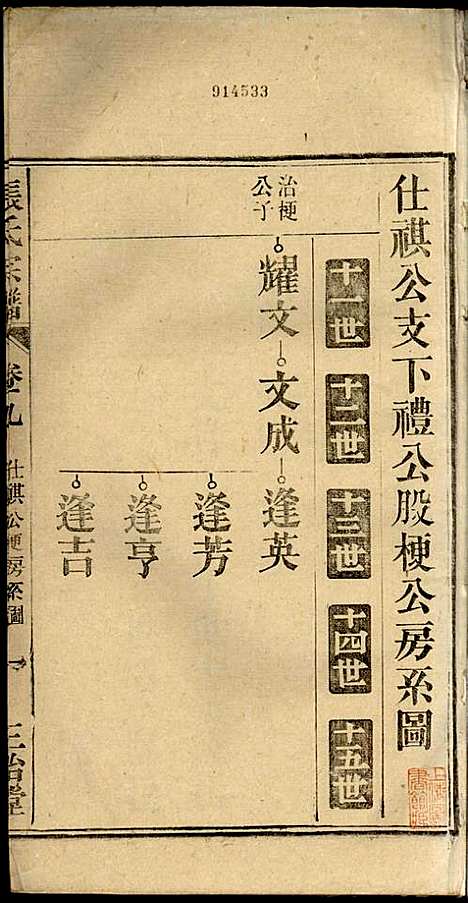 914533
仕祺公支下禮公股梗公房系圖
十一世
十二世
十三世
十四世
十五世
治梗
公子
耀文
文成
逢英
逢芳
逢亨
逢吉
張氏宗譜
卷九
仕祺公梗房系圖
一
三治堂